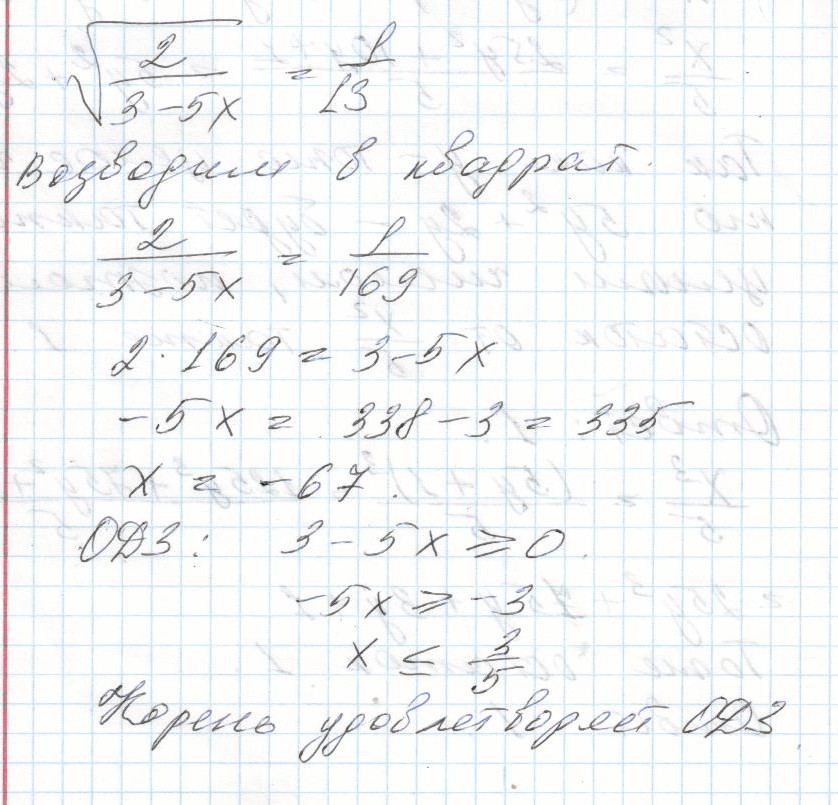 √(2/(3-5x)) = 1/13
Возводим в квадрат.
2/(3-5x) = 1/169
2·169 = 3-5x
-5x = 338-3 = 335
x = -67.
ОДЗ: 3-5x ≥ 0.
-5x ≥ -3
x ≤ 3/5
Корень удовлетворяет ОДЗ.